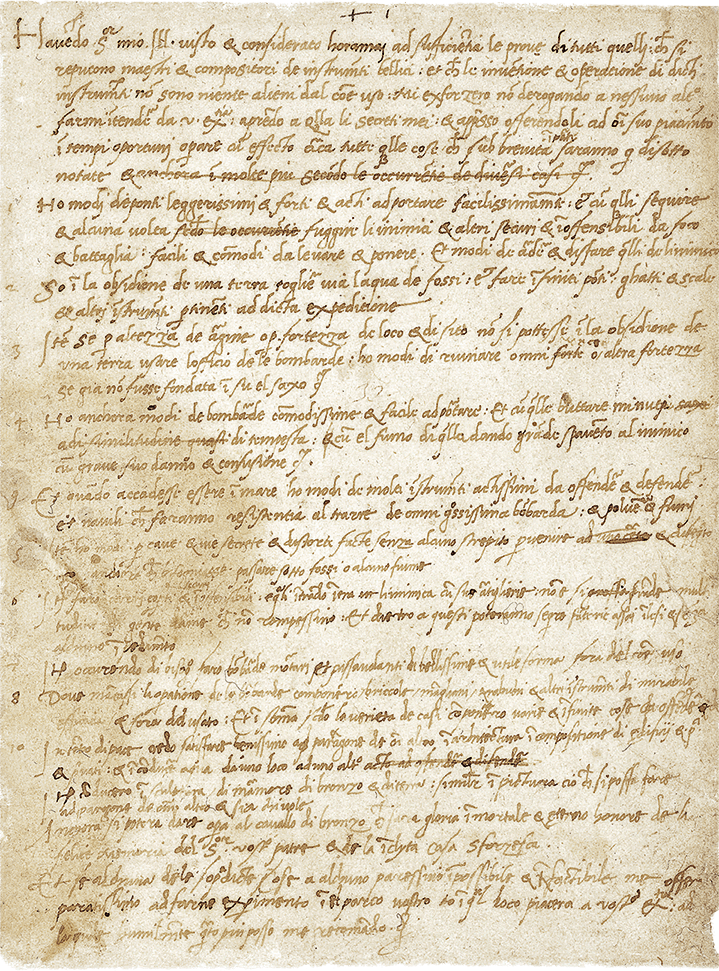 Havēdo S.or mio Ill. visto & considerato horamai ad sufficiētia le prove di tutti quelli ch si
reputono maestri & compositori de instrumti bellici : et ch le invētione & operatione di dicti
instrumti nō sono niente alieni dal cōe uso : Mi exforzero nō derogando a nessuno alt.o
farmi itendē da v. ex.tia : aprēdo a qlla li secreti mei : & apsso offerendoli ad oī suo piacimto
ī tempi oportuni operare cū effecto circa tutte qlle cose ch sub brevita ī pte saranno q disotto
notate & anchora ī molte piu secōdo le occurrētie de diversi casi
Ho modi deponti leggerissimi & forti & acti ad portare facilissimamte : & cū qlli seguire
& alcuna volta secōdo le occurrētie fuggire li inimici & altri securi & īoffensibili da foco
& battaglia : facili & cōmodi da levare & ponere . Et modi de ardē & disfare qlli de linimico
2 So ī la obsidione de una terra toglie via laqua de fossi : & fare īfiniti pōti ghatti & scale
& altri īstrumti ptinēti ad dicta expeditione
3 Itē se p altezza de argine o p fortezza de loco & di sito nō si potesse ī la obsidione de
una terra usare lofficio de le bombarde : ho modi di ruinare omni forte o altra fortezza
se gia nō fusse fondata ī su el saxo
4 Ho anchora modi de bombarde cōmodissime & facile ad portare : Et cū qlle buttare minuti saxi
a di similitudine quasi di tempesta : & cū el fumo di qlla dando grāde spavēto al inimico
cū grave suo danno & confusione
9 Et quādo accadesse essere ī mare ho modi de molti īstrumti actissimi da offendē & defendē :
et navili ch faranno resistentia al trarre de omni grossissima bōbarda : & polvē & fumi
5 Itē ho modi p cave & vie secrete & distorte facte senza alcuno strepito p venire ad & disegto
passare sotto fossi o alcuno fiume
6 Itē faro carri coperti & : e qli ītrādo ītra li inimici cū sue artiglierie : non e si grāde multi
tudine di gente darme ch nō rompessino : Et dietro a questi poteranno seqre fāterie assai īlesi & sēza
alcuno īpedimto
7 Itē occurrendo di bisogo faro bōbarde mortari & passavolanti di bellissime & utile forme fora del cōe uso
8 Dove mācassi la opatione de le bōbarde componero briccole māgani trabuchi & altri īstrumti di mirabile
efficacia & fora del usato : Et ī sōma secōdo la varieta de casi cōponero varie & īfinite cose da offēdē &
10 In tēpo di pace credo satisfare benissimo ad paragone de oī altro ī architectura ī compositione di edificii & p
& privati : & ī cōducē aqua da uno loco ad uno alto acto ad offendē & difendē
Itē conducero ī sculptura di marmore di bronzo & di terra : similr ī pictura cio ch si possa fare
ad paragone de omni altro & sia chi vole
Anchora si potera dare opa al cavallo di bronzo ch sara gloria īmortale & eterno honore de la
felice memoria del S.or vost.o patre & de la īclyta casa Sforzesca .
Et se alchuna de le sopdicte cose a alchuno paressino īpossibile & īfactibile me offer
paratissimo ad farne experimento ī el parco vostro o ī qual loco piacera a vost.a ex.tia : ad
la quale humilmte quāto piu posso me recomādo